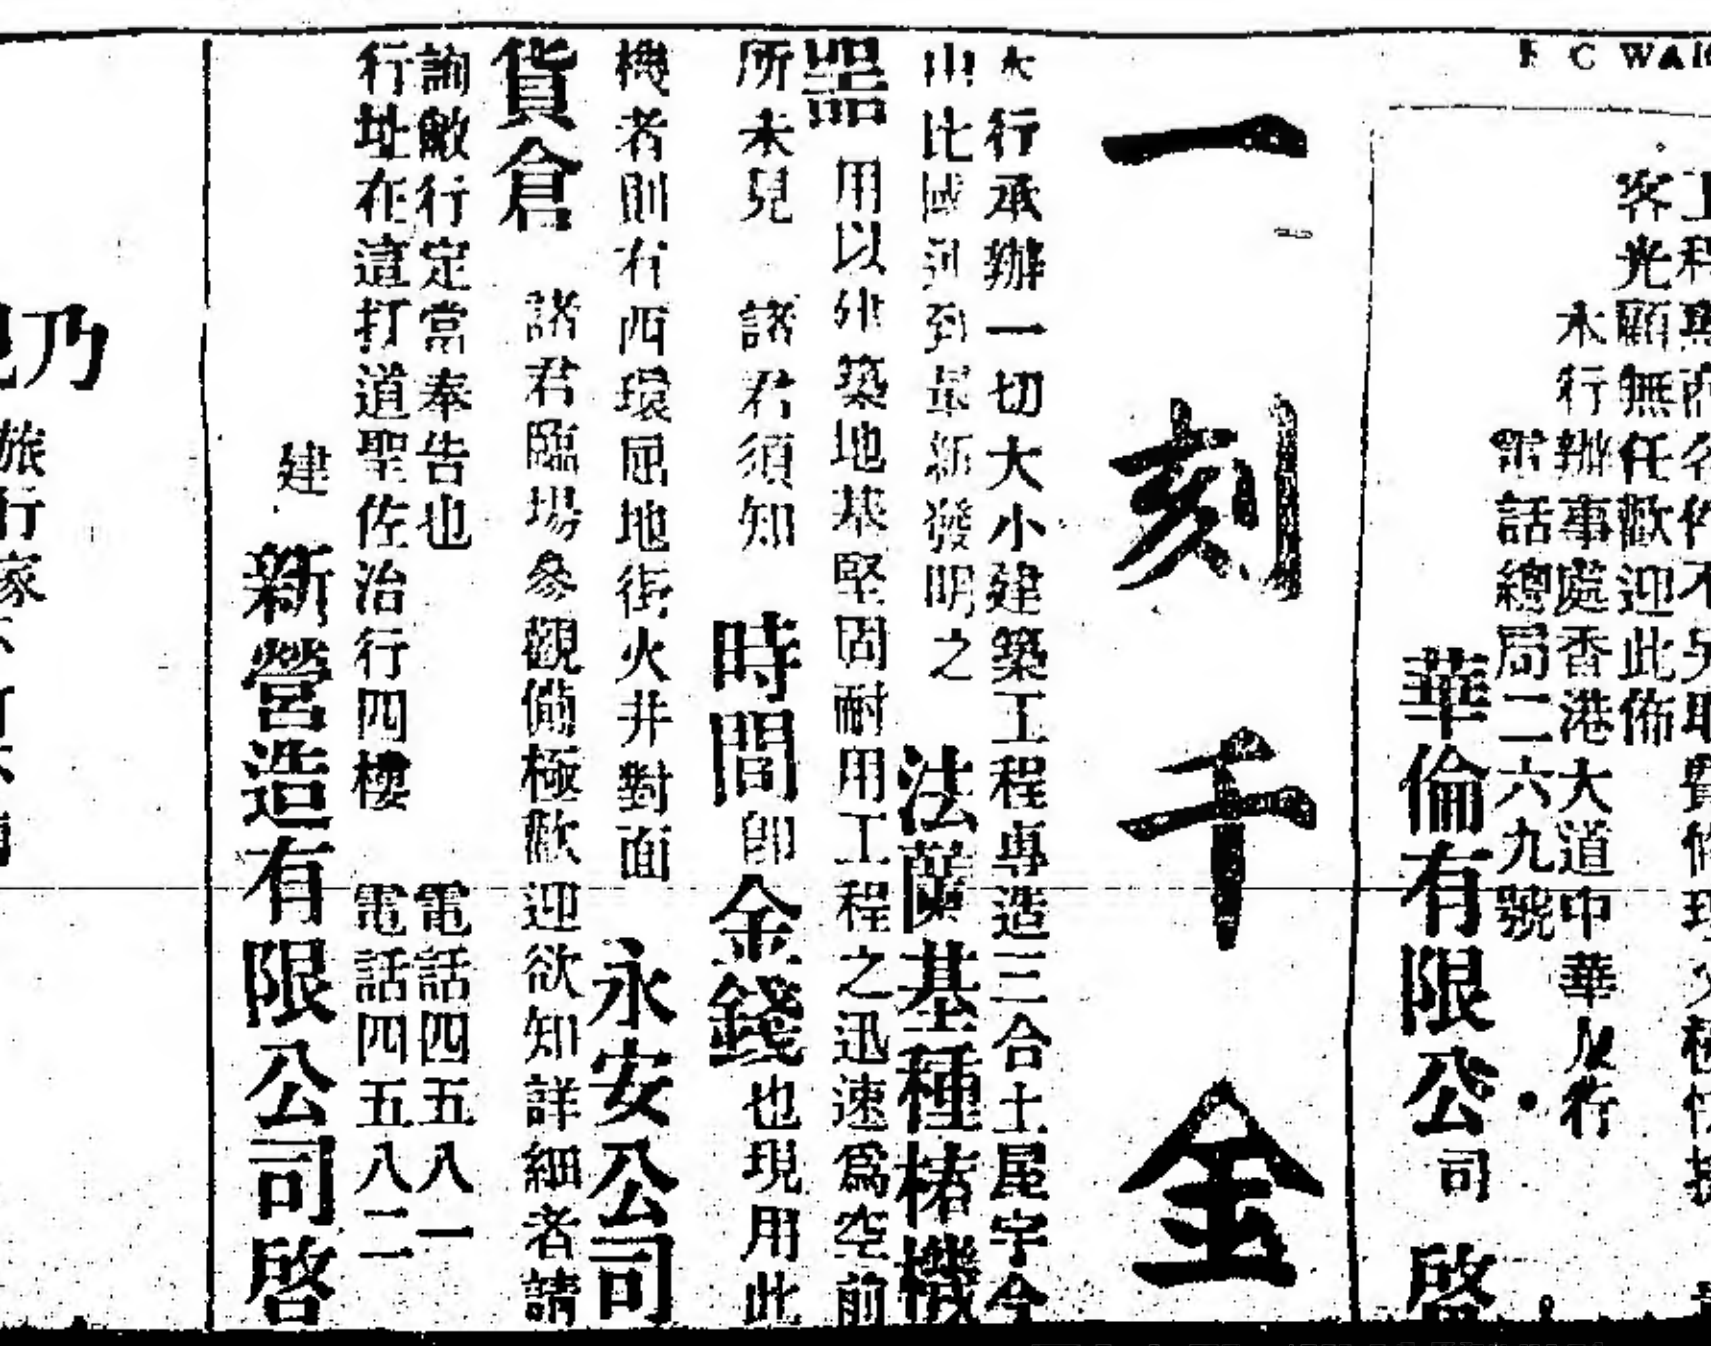 F C WA
客光顧無任歡迎此佈
本行辦事處香港大道中華人行
電話總局二六九號
華倫有限公司 啓
一刻千金
本行承辦一切大小建築工程專造三合土屋宇今
由比國到最新發明之 法蘭基種樁機
器 用以建築地基堅固耐用工程之迅速爲空前
所未見 諸君須知 時間即金錢也現用此
機者則有西環屈地街火井對面 永安公司
貨倉 諸君臨場參觀備極歡迎欲知詳細者請
詢敝行定當奉告也 電話四五八一
行址在遮打道聖佐治行四樓 電話四五八二
建新營造有限公司啓
乃
旅行家